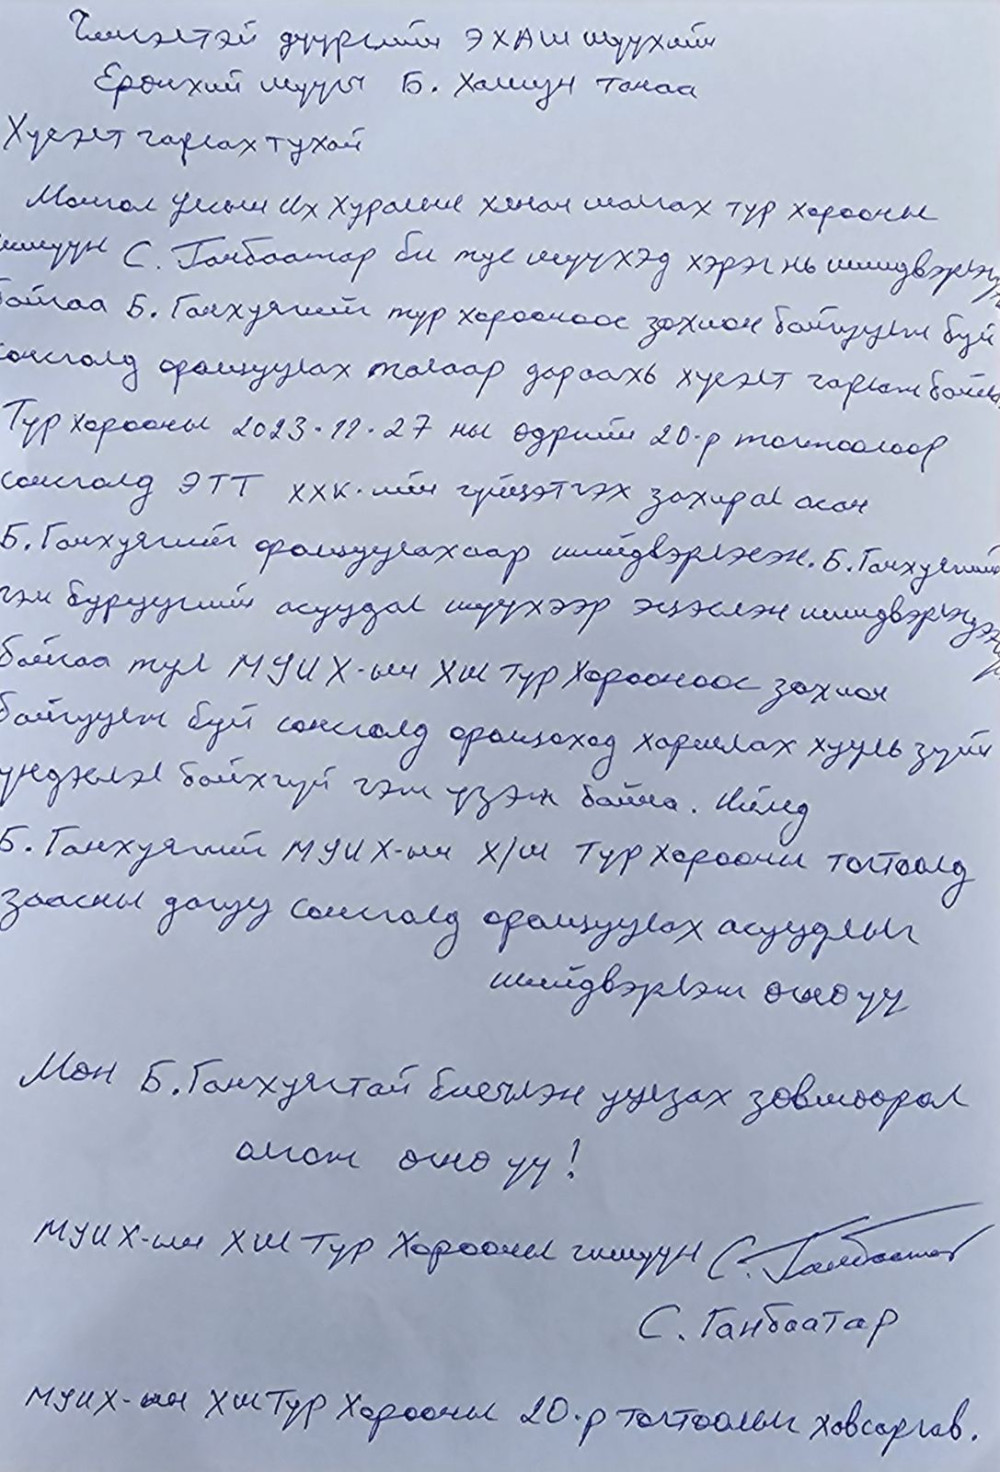 Чингэлтэй дүүргийн ЭХАШ шүүхийн
Ерөнхий шүүгч Б. Хашхүн танаа
Хүсэлт гаргах тухай
Монгол Улсын Их Хурлын хянан шалгах түр хорооны
гишүүн С. Ганбаатар би тус шүүхэд хэрэг нь шийдвэрлэгдэж
байгаа Б. Ганхуягийг түр хорооноос зохион байгуулж буй
сонсголд оролцуулах талаар дараахь хүсэлт гаргаж байна
Түр хорооны 2023-12-27 ны өдрийн 20-р тогтоолоор
сонсголд ЭТТ ХХК-ийн гүйцэтгэх захирал асан
Б.Ганхуягийг оролцуулахаар шийдвэрлэжээ. Б.Ганхуягийн
гэм буруугийн асуудал шүүхээр эцэслэн шийдвэрлэгдээгүй
байгаа тул МУИХ-ын ХШ Түр Хорооноос зохион
байгуулж буй сонсголд оролцоход харшлах хууль зүйн
үндэслэл байхгүй гэж үзэж байна. Иймд
Б. Ганхуягийг МУИХ-ын Х/Ш Түр Хорооны тогтоолд
заасны дагуу сонсголд оролцуулах асуудлыг
шийдвэрлэж өгнө үү
Мөн Б.Ганхуягтай биечлэн уулзах зөвшөөрөл
олгож өгнө үү!
МУИХ-ын ХШ Түр Хорооны гишүүн С. Ганбаатар
С. Ганбаатар
МУИХ-ын ХШ Түр Хорооны 20-р тогтоолыг хавсаргав.